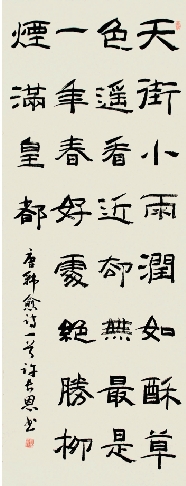 天街小雨潤如酥草
色遥看近却無最是
一年春好處絕勝柳
煙滿皇都
唐韩愈诗一首